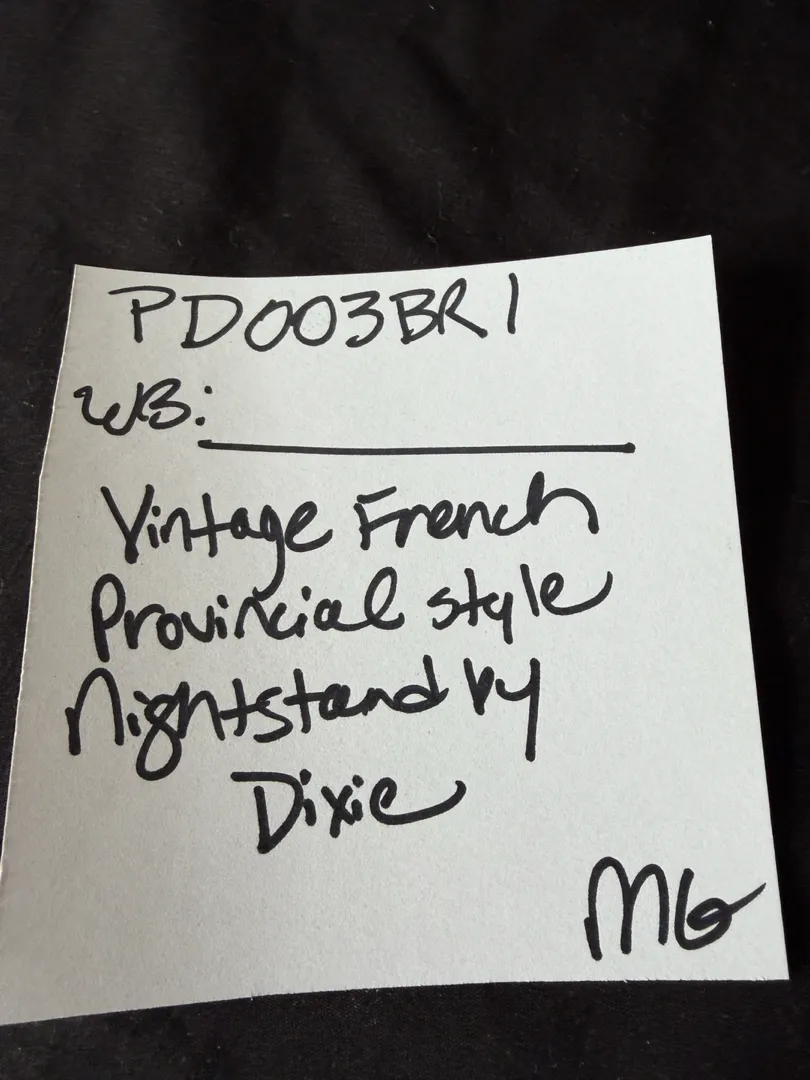 PD003BR1
WB:
Vintage French
Provincial style
Nightstand by
Dixie
MG